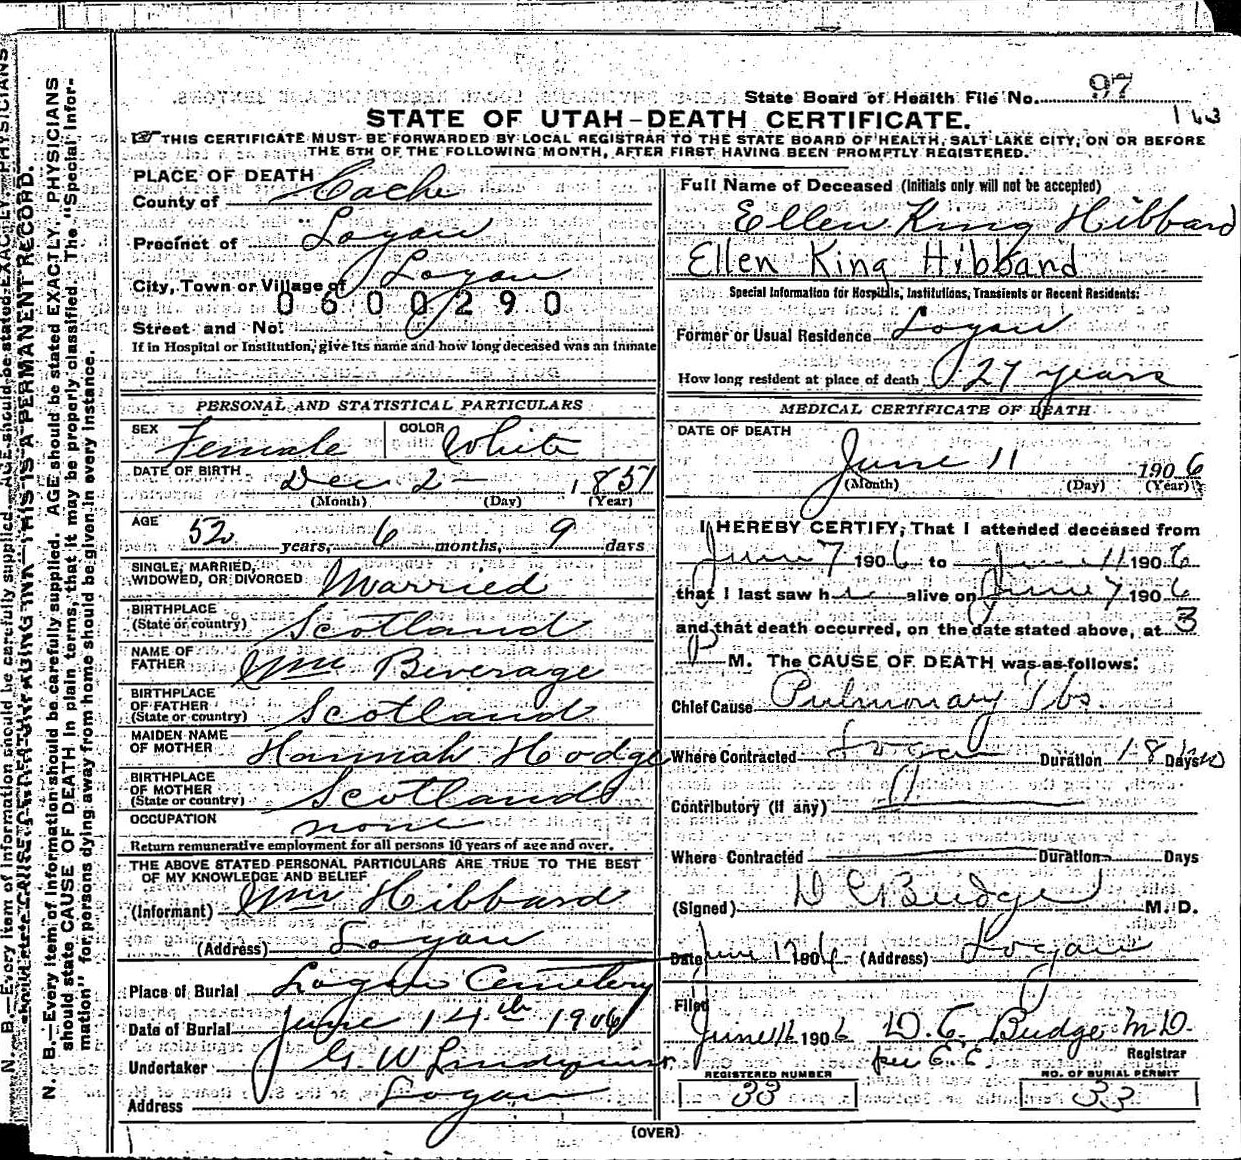 State Board of Health File No. 97
143
STATE OF UTAH-DEATH CERTIFICATE.
THIS CERTIFICATE MUST BE FORWARDED BY LOCAL REGISTRAR TO THE STATE BOARD OF HEALTH, SALT LAKE CITY, ON OR BEFORE
THE 5TH OF THE FOLLOWING MONTH, AFTER FIRST HAVING BEEN PROMPTLY REGISTERED.
PLACE OF DEATH
County of Cache
Precinct of Logan
City, Town or Village of Logan
0600290
Street and No.
If in Hospital or Institution, give its name and how long deceased was an inmate
PERSONAL AND STATISTICAL PARTICULARS
SEX Female COLOR White
DATE OF BIRTH Dec 2 1851
(Month) (Day) (Year)
AGE 52 years, 6 months, 9 days
SINGLE, MARRIED,
WIDOWED, OR DIVORCED Married
BIRTHPLACE
(State or country) Scotland
NAME OF
FATHER Wm Beverage
BIRTHPLACE
OF FATHER
(State or country) Scotland
MAIDEN NAME
OF MOTHER Hannah Hodge
BIRTHPLACE
OF MOTHER
(State or country) Scotland
OCCUPATION none
Return remunerative employment for all persons 10 years of age and over.
THE ABOVE STATED PERSONAL PARTICULARS ARE TRUE TO THE BEST
OF MY KNOWLEDGE AND BELIEF
(Informant) Wm Hibbard
(Address) Logan
Place of Burial Logan Cemetery
Date of Burial June 14th 1906
Undertaker G. W. Lindquist
Address Logan
Full Name of Deceased (Initials only will not be accepted)
Ellen King Hibbard
Ellen King Hibband
Special Information for Hospitals, Institutions, Transients or Recent Residents:
Former or Usual Residence Logan
How long resident at place of death 27 years
MEDICAL CERTIFICATE OF DEATH
DATE OF DEATH
June 11 1906
(Month) (Day) (Year)
I HEREBY CERTIFY, That I attended deceased from
June 7 1906 to June 11 1906
that I last saw her alive on June 7 1906
and that death occurred, on the date stated above, at 3
P M. The CAUSE OF DEATH was as follows:
Chief Cause Pulmonary Tbs
Where Contracted Logan Duration 18 Days
Contributory (if any)
Where Contracted Duration Days
(Signed) D C Budge M. D.
Date June 1906 (Address) Logan
Filed
June 16 1906 D. C. Budge M.D.
per E. E. Registrar
REGISTERED NUMBER NO. OF BURIAL PERMIT
33 33
(OVER)
N. B.—Every item of information should be carefully supplied. AGE should be stated EXACTLY. PHYSICIANS
should state CAUSE OF DEATH in plain terms, that it may be properly classified. The "Special Infor-
mation" for persons dying away from home should be given in every instance.
THIS IS A PERMANENT RECORD.
N. B.—Every item of information should be carefully supplied. AGE should be stated EXACTLY. PHYSICIANS